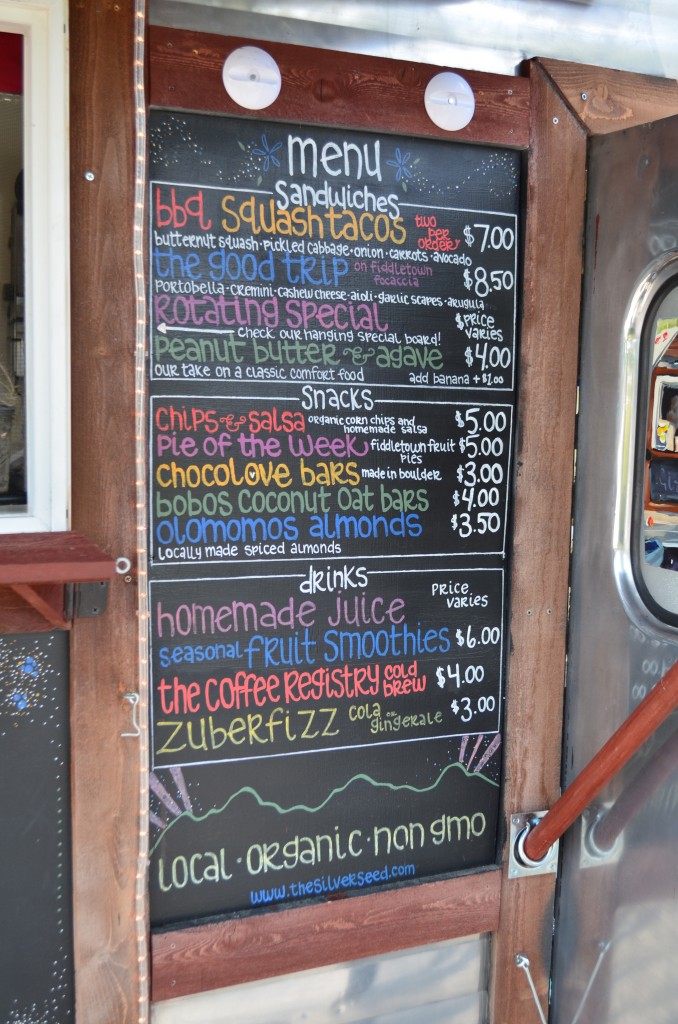 menu
Sandwiches
bbq squash tacos two per order $7.00
butternut squash · pickled cabbage · onion · carrots · avocado
the good trip on fiddletown focaccia $8.50
portobella · cremini · cashew cheese · aioli · garlic scapes · arugula
Rotating Special $Price varies
check our hanging special board!
Peanut butter & agave $4.00
our take on a classic comfort food add banana + $1.00
Snacks
chips & salsa organic corn chips and homemade salsa $5.00
Pie of the Week fiddletown fruit pies $5.00
chocolove bars made in boulder $3.00
bobos coconut oat bars $4.00
olomomos almonds $3.50
locally made spiced almonds
drinks
homemade juice Price varies
seasonal fruit smoothies $6.00
the coffee registry cold brew $4.00
zuberfizz cola or gingerale $3.00
local · organic · non gmo
www.thesilverseed.com